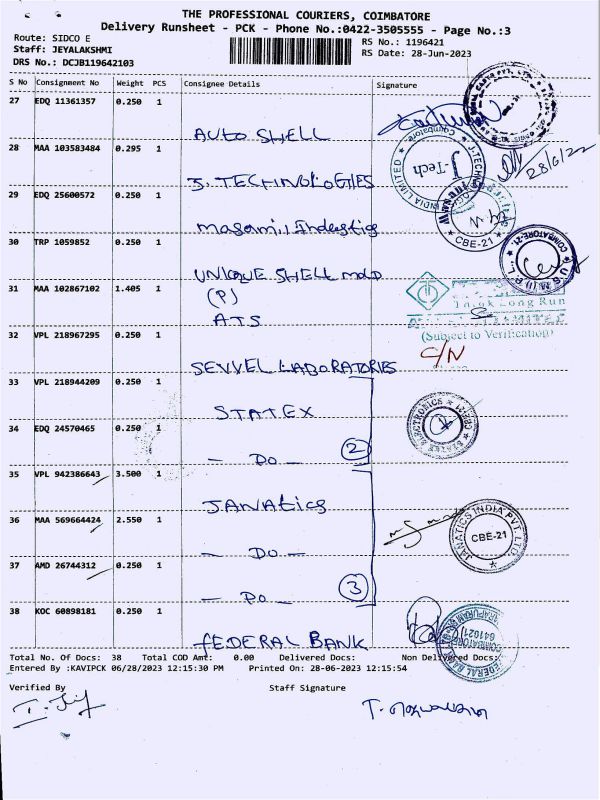 THE PROFESSIONAL COURIERS, COIMBATORE
Delivery Runsheet - PCK - Phone No.:0422-3505555 - Page No.:3
Route: SIDCO E
RS No.: 1196421
Staff: JEYALAKSHMI
RS Date: 28-Jun-2023
DRS No.: DCJB119642103
S No Consignment No Weight PCS Consignee Details Signature
27 EDQ 11361357 0.250 1
AUTO SHELL
28 MAA 103583484 0.295 1
J-Tech
Coimbatore
INDIA LIMITED
28/6/22
J. TECHNOLOGIES
29 EDQ 25600572 0.250 1
CBE-21
masami, Industies
30 TRP 1059852 0.250 1
COIMBATORE-21.
UNIQUE SHELL mold
31 MAA 102867102 1.405 1
(P)
Think Long Run
ATS
32 VPL 218967295 0.250 1
(Subject to Verification)
C/N
SEVVEL LABORATORIES
33 VPL 218944209 0.250 1
STATEX
STATEX ELECTRONICS
34 EDQ 24570465 0.250 1
- Do - 2
35 VPL 942386643 3.500 1
JANATICS
36 MAA 569664424 2.550 1
JANATICS INDIA PVT. LTD.
CBE-21
- Do -
37 AMD 26744312 0.250 1
- Do - 3
38 KOC 60898181 0.250 1
FEDERAL BANK
COIMBATORE
641021
FEDERAL BANK
Total No. Of Docs: 38 Total COD Amt: 0.00 Delivered Docs: Non Delivered Docs:
Entered By :KAVIPCK 06/28/2023 12:15:30 PM Printed On: 28-06-2023 12:15:54
Verified By Staff Signature